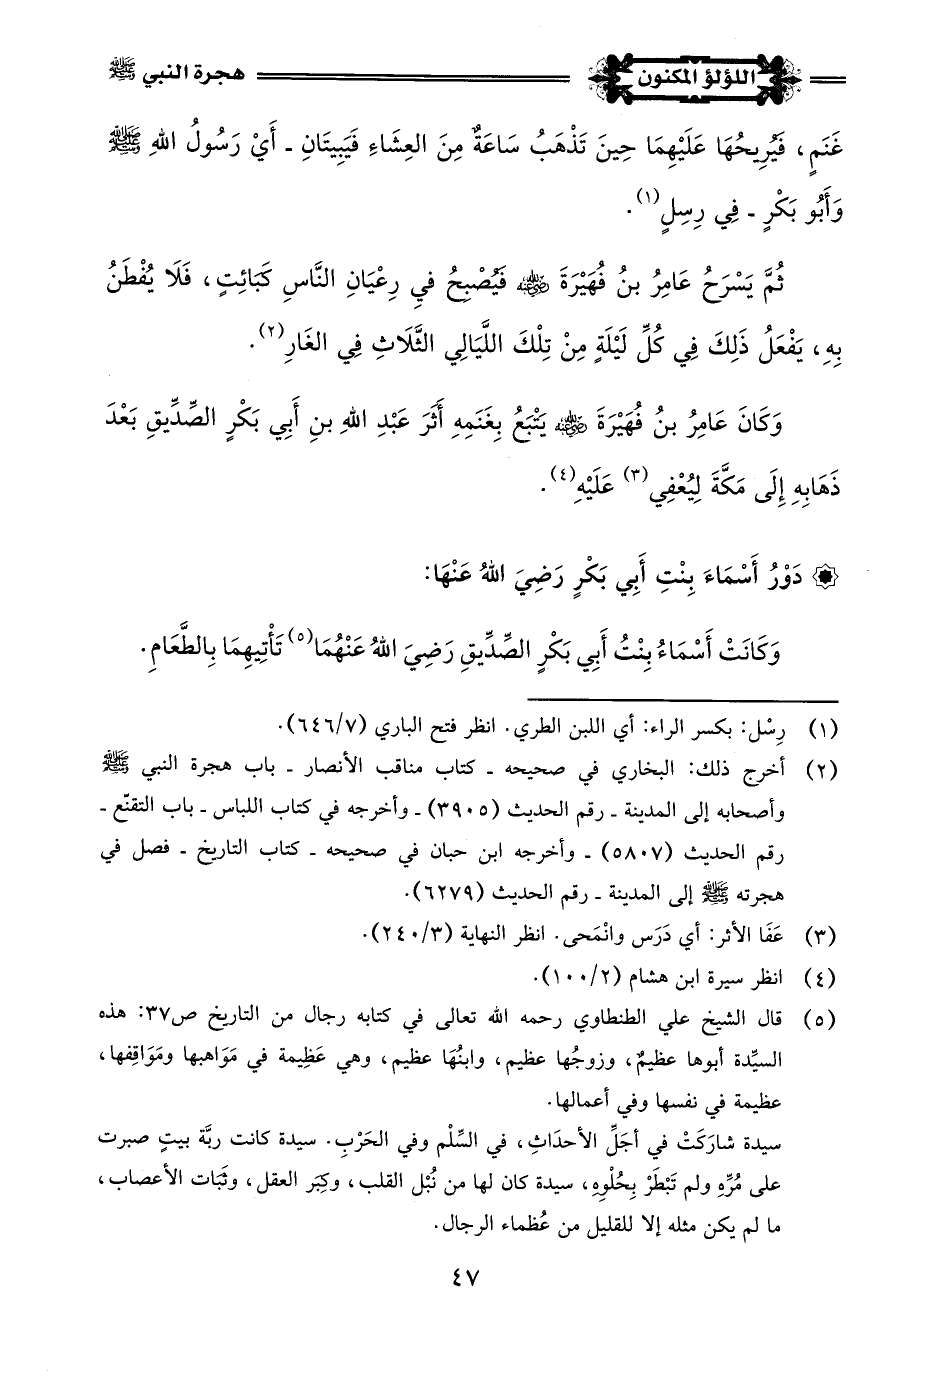 اللؤلؤ المكنون
هجرة النبي ﷺ
غَنَمٍ، فَيُرِيحُهَا عَلَيْهِمَا حِينَ تَذْهَبُ سَاعَةٌ مِنَ العِشَاءِ فَيَبِيتَانِ - أَيْ رَسُولُ اللهِ ﷺ
وَأَبُو بَكْرٍ - فِي رِسِلٍ(١).
ثُمَّ يَسْرَحُ عَامِرُ بنُ فُهَيْرَةَ رضي الله عنه فَيُصْبِحُ فِي رِعْيَانِ النَّاسِ كَبَائِتٍ، فَلَا يُفْطَنُ
بِهِ، يَفْعَلُ ذَلِكَ فِي كُلِّ لَيْلَةٍ مِنْ تِلْكَ اللَّيَالِي الثَّلَاثِ فِي الغَارِ(٢).
وَكَانَ عَامِرُ بنُ فُهَيْرَةَ رضي الله عنه يَتْبَعُ بِغَنَمِهِ أَثَرَ عَبْدِ اللهِ بنِ أَبِي بَكْرٍ الصِّدِّيقِ بَعْدَ
ذَهَابِهِ إِلَى مَكَّةَ لِيُعْفِي(٣) عَلَيْهِ(٤).
دَوْرُ أَسْمَاءَ بِنْتِ أَبِي بَكْرٍ رَضِيَ اللهُ عَنْهَا:
وَكَانَتْ أَسْمَاءُ بِنْتُ أَبِي بَكْرٍ الصِّدِّيقِ رَضِيَ اللهُ عَنْهُمَا(٥) تَأْتِيهِمَا بِالطَّعَامِ.
(١) رِسْل: بكسر الراء: أي اللبن الطري. انظر فتح الباري (٦٤٦/٧).
(٢) أخرج ذلك: البخاري في صحيحه - كتاب مناقب الأنصار - باب هجرة النبي ﷺ
وأصحابه إلى المدينة - رقم الحديث (٣٩٠٥) - وأخرجه في كتاب اللباس - باب التقنّع -
رقم الحديث (٥٨٠٧) - وأخرجه ابن حبان في صحيحه - كتاب التاريخ - فصل في
هجرته ﷺ إلى المدينة - رقم الحديث (٦٢٧٩).
(٣) عَفَا الأثر: أي دَرَس وانْمَحى. انظر النهاية (٢٤٠/٣).
(٤) انظر سيرة ابن هشام (١٠٠/٢).
(٥) قال الشيخ علي الطنطاوي رحمه الله تعالى في كتابه رجال من التاريخ ص٣٧: هذه
السيِّدة أبوها عظيمٌ، وزوجُها عظيم، وابنُهَا عظيم، وهي عَظِيمة في مَوَاهبها ومَوَاقِفها،
عظيمة في نفسها وفي أعمالها.
سيدة شارَكَتْ في أجَلِّ الأحدَاثِ، في السِّلْم وفي الحَرْبِ. سيدة كانت ربَّة بيتٍ صبرت
على مُرِّهِ ولم تَبْطَرْ بِحُلْوِهِ، سيدة كان لها من نُبْل القلب، وكِبَر العقل، وثَبَات الأعصاب،
ما لم يكن مثله إلا للقليل من عُظماء الرجال.
٤٧